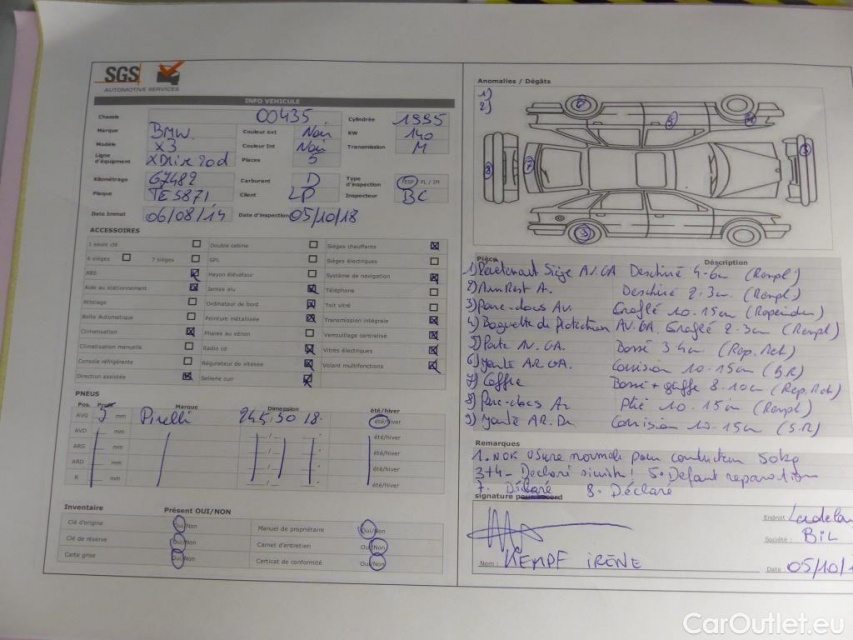 SGS
AUTOMOTIVE SERVICES
INFO VEHICULE
Chassis 00435 Cylindrée 1995
Marque BMW Couleur ext Noir KW 140
Modèle X3 Couleur Int Noir Transmission M
Ligne d'équipement XDrive 20d Places 5
Kilométrage 67482 Carburant D Type d'inspection
Plaque TE5871 Client LP Inspecteur BC
Date Immat 06/08/14 Date d'inspection 05/10/18
ACCESSOIRES
Double cabine Sièges chauffants
4 sièges 7 sièges GPL Sièges électriques
ABS Hayon élévateur Système de navigation
Aide au stationnement Jantes alu Téléphone
Attelage Ordinateur de bord Toit ouvrant
Boîte Automatique Peinture métallisée Transmission intégrale
Climatisation Phares au xénon Verrouillage centralisé
Climatisation manuelle Radio cd Vitres électriques
Console réfrigérante Régulateur de vitesse Volant multifonctions
Direction assistée Sellerie cuir
PNEUS
Pos. Prof. Marque Dimension été/hiver
AVG 5 mm Pirelli 245.50 18. été/hiver
AVD mm été/hiver
ARG mm été/hiver
ARD mm été/hiver
R mm été/hiver
Inventaire Présent OUI/NON
Clé d'origine Oui/Non Manuel de propriétaire Oui/Non
Clé de réserve Oui/Non Carnet d'entretien Oui/Non
Carte grise Oui/Non Certicat de conformité Oui/Non
Anomalies / Dégâts
1)
2)
Pièce Description
1) Revêtement Siège AV.GA Déchiré 4-6cm (Rempl)
2) Armrest A. Déchiré 2-3cm (Rempl)
3) Pare-chocs Av. Griffé 10-15cm (Repeindre)
4) Baguette de Protection AV.GA. Griffé 2-3cm (Rempl)
5) Porte AV.GA. Bossé 3-4cm (Rep.Ret)
6) Jante AR.GA. Corrosion 10-15cm (S.R)
7) Coffre Bossé + griffe 8-10cm (Rep.Ret)
8) Pare-chocs Ar Plié 10-15cm (Rempl)
9) Jante AR.Dr. Corrosion 10-15cm (S.R)
Remarques
1. NOK usure normale pour conducteur
3+4- Déclaré sinistre! 5- Défaut réparation
7- Déclaré 8- Déclaré
signature pour accord
Nom: KEMPF IRENE
Endroit
Société: BIL
Date 05/10/1
CarOutlet.eu